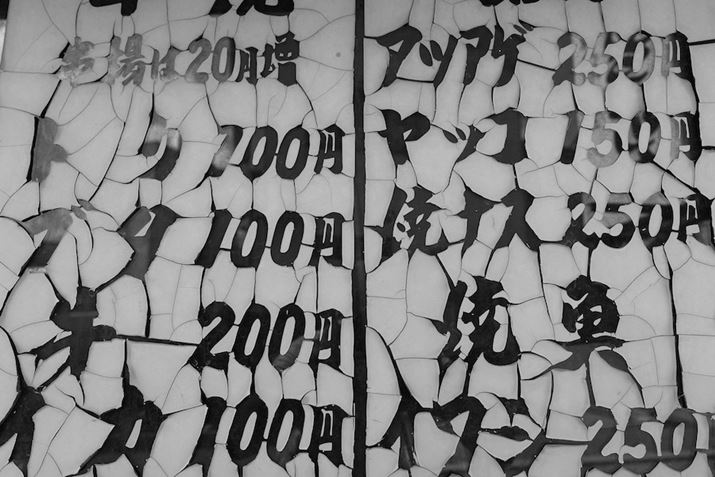 場は20円増
トリ 100円
ブタ 100円
牛 200円
イカ 100円
アツアゲ 250円
ヤッコ 150円
焼ナス 250円
焼魚
イワシ 250円